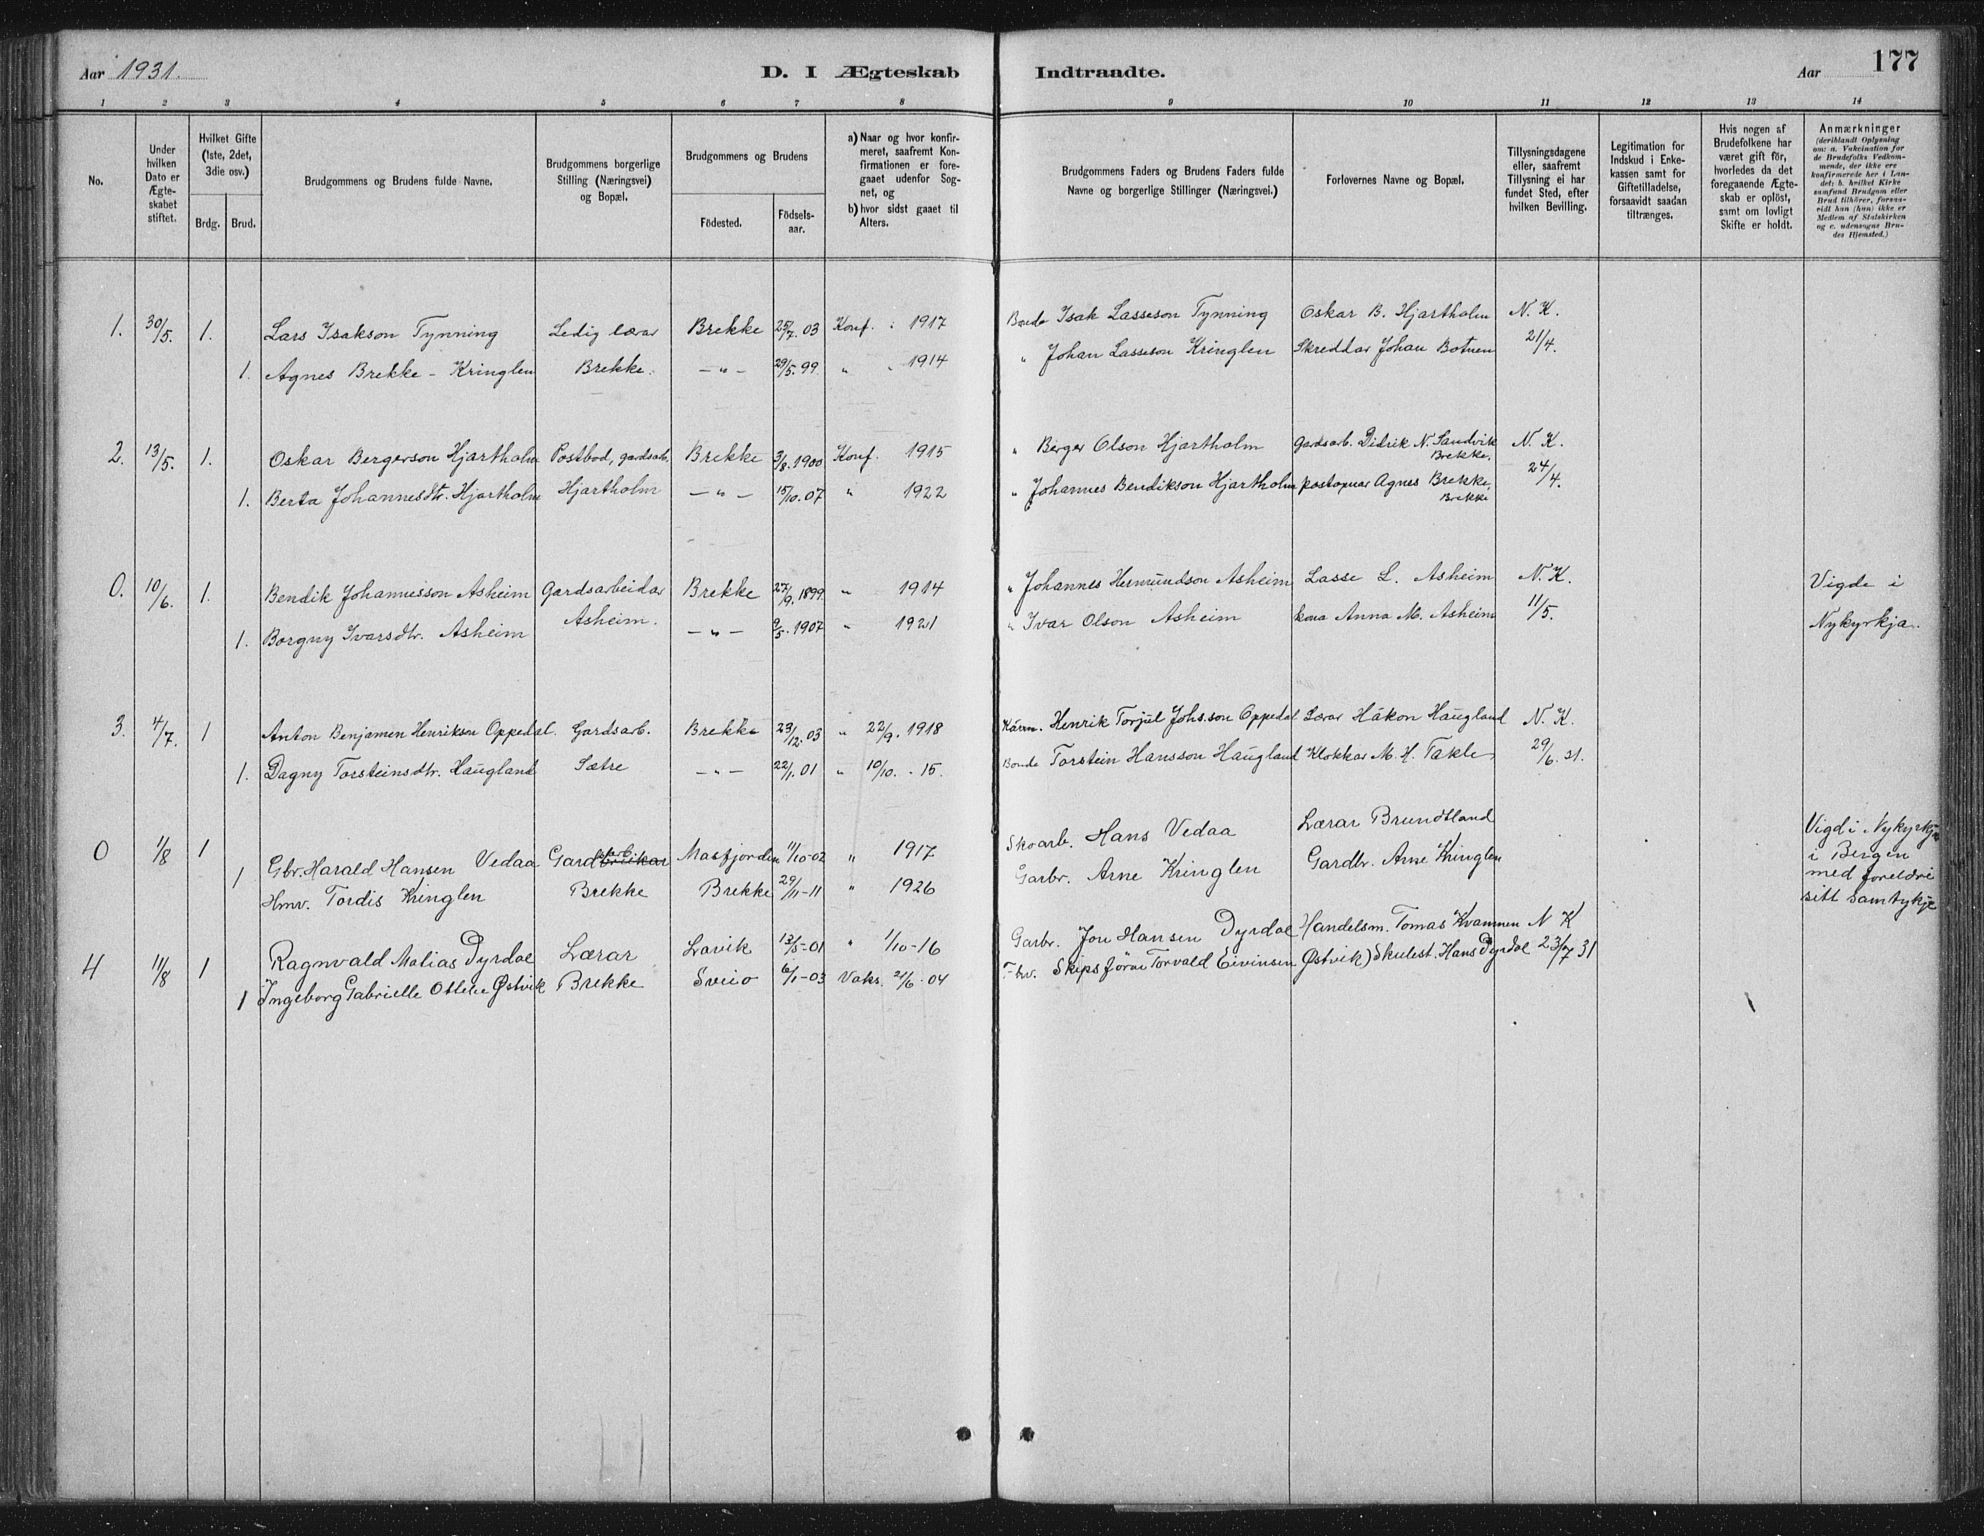 Aar 1931.
D. I Ægteskab Indtraadte.
Aar 177
1 2 3 4 5 6 7 8 9 10 11 12 13 14
No.
Under hvilken Dato er Ægteskabet stiftet.
Hvilket Gifte (1ste, 2det, 3die osv.)
Brdg. Brud.
Brudgommens og Brudens fulde Navne.
Brudgommens borgerlige Stilling (Næringsvei) og Bopæl.
Brudgommens og Brudens
Födested.
Födselsaar.
a) Naar og hvor konfirmeret, saafremt Konfirmationen er foregaaet udenfor Sognet, og
b) hvor sidst gaaet til Alters.
Brudgommens Faders og Brudens Faders fulde Navne og borgerlige Stillinger (Næringsvei.)
Forlovernes Navne og Bopæl.
Tillysningsdagene eller, saafremt Tillysning ei har fundet Sted, efter hvilken Bevilling.
Legitimation for Indskud i Enkekassen samt for Giftetilladelse, forsaavidt saadan tiltrænges.
Hvis nogen af Brudefolkene har været gift för, hvorledes da det foregaaende Ægteskab er oplöst, samt om lovligt Skifte er holdt.
Anmærkninger (deriblandt Oplysning om: a. Vakcination for de Brudefolks Vedkommende, der ikke ere konfirmerede her i Landet; b. hvilket Kirkesamfund Brudgom eller Brud tilhörer, forsaavidt han (hun) ikke er Medlem af Statskirken og c. udensogns Brudes Hjemsted.)
1. 30/5. 1. Lars Isakson Tynning Ledig lærar Brekke 25/7. 03 Konf. 1917 Bonde Isak Lasseson Tynning Oskar B. Hjartholm N. K.
1. Agnes Brekke - Kringlen Brekke. -"- 29/5. 99. " " 1914 " Johan Lasseson Kringlen Skreddar Johan Botnen 21/4.
2. 13/5. 1. Oskar Bergerson Hjartholm Postbod, gardsarb. Brekke 3/8. 1900 Konf. 1915 " Berger Olson Hjartholm Gardsarb. Didrik N. Sandvik Brekke. N. K.
1. Berta Johannesdtr. Hjartholm Hjartholm -"- 15/10. 07 " 1922 " Johannes Bendikson Hjartholm postopnar Agnes Brekke, Brekke 24/4.
0. 10/6. 1. Bendik Johannesson Asheim Gardsarbeidar Brekke 27/9. 1899 " 1914 " Johannes Hermundson Asheim Lasse L. Asheim N. K. Vigde i
1. Borgny Ivarsdtr. Asheim Asheim. -"- 9/5. 1907 " 1921 " Ivar Olson Asheim kona Anna M. Asheim 11/5. Nykyrkja.
3. 4/7. 1 Anton Benjamen Henrikson Oppedal. Gardsarb. Brekke 23/12. 03 " 22/9. 1918 Kårm. Henrik Torjul Johs.son Oppedal Lærar Håkon Haugland N. K.
1. Dagny Torsteinsdtr. Haugland Sætre -"- 22/1. 01 " 10/10. - 15. Bonde Torstein Hansson Haugland Klokkar M. H. Takle 29/6. 31.
0 1/8 1 Gbr. Harald Hansen Vedaa Gardbrukar Masfjorden 11/10-02 " 1917 Skoarb. Hans Vedaa Lærar Brundtland Vigd i Nykyrkja
1 Hmv. Tordis Kringlen Brekke Brekke 29/11-11 " 1926 Garbr. Arne Kringlen Gardbr. Arne Kringlen i Bergen
med foreldri
sitt samtykje
4 11/8 1 Ragnvald Matias Dyrdal Lærar Lavik 13/5-01 " 1/10-16 Garbr. Jon Hansen Dyrdal Handelsm. Tomas Kvammen N K
1 Ingeborg Gabrielle Ottelie Østvik Brekke Sveio 6/1-03 Vaks. 21/6-04 Skipsförar Torvald Eivinsen Østvik) Skulest. Hans Dyrdal 23/7 31